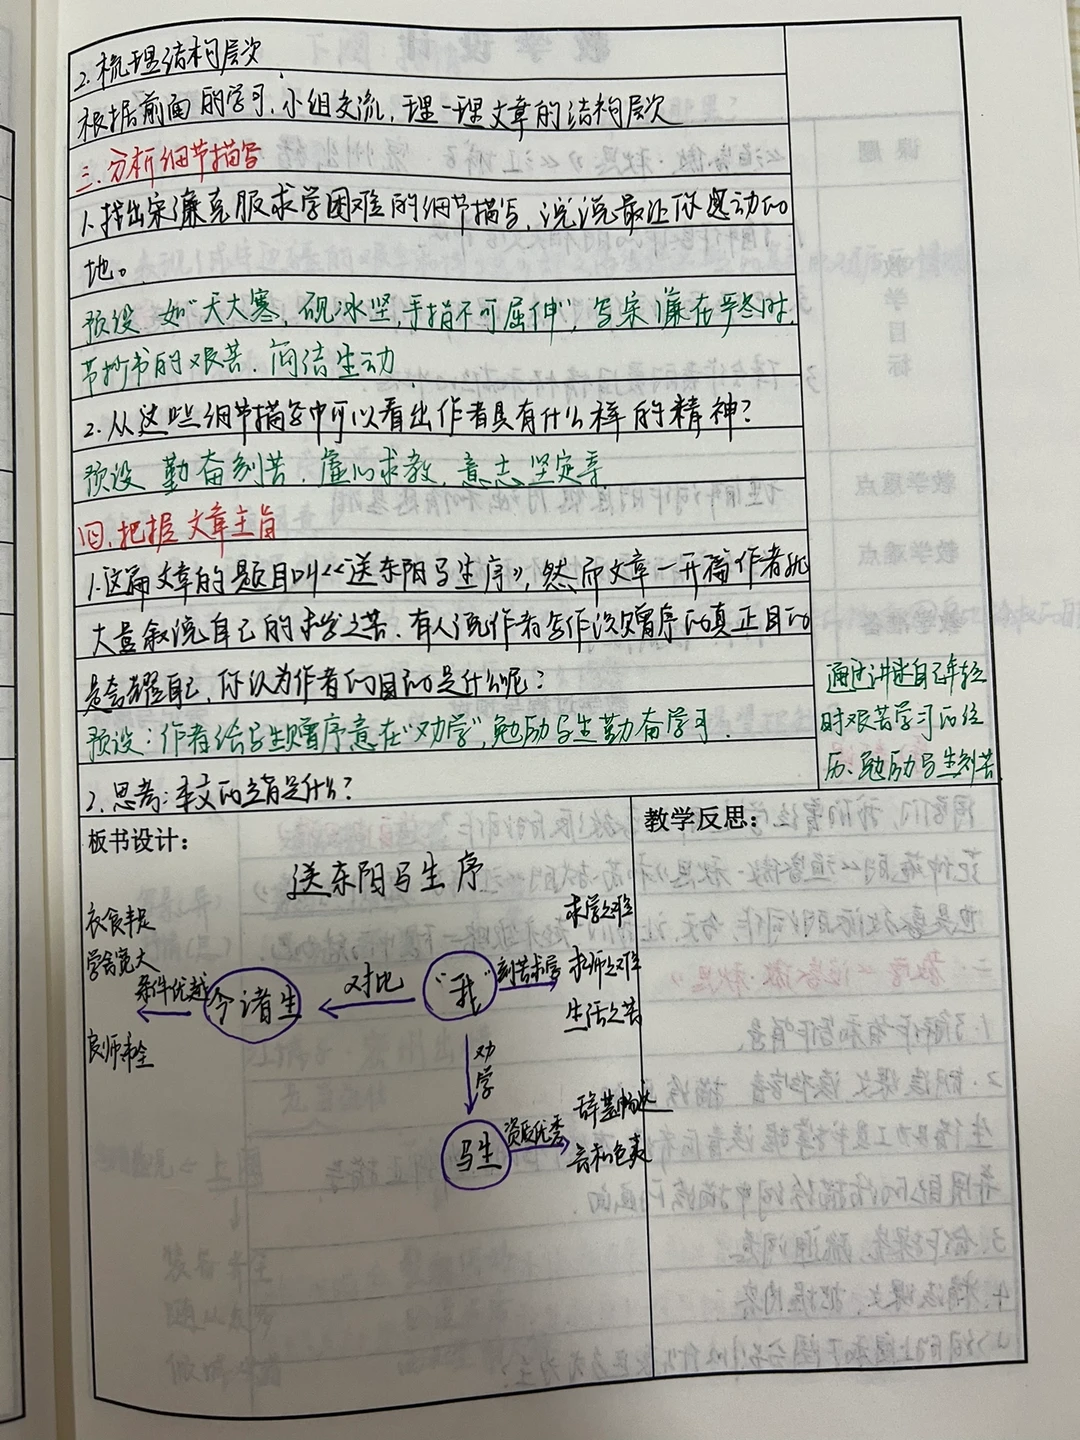 2.梳理结构层次
根据前面的学习,小组交流,理一理文章的结构层次
三.分析细节描写
1.找出宋濂克服求学困难的细节描写,说说最让你感动的
地。
预设 如"天大寒,砚冰坚,手指不可屈伸",写宋濂在严冬时
节抄书的艰苦.简洁生动
2.从这些细节描写中可以看出作者具有什么样的精神?
预设 勤奋刻苦.虚心求教,意志坚定等
四.把握文章主旨
1.这篇文章的题目叫《送东阳马生序》,然而文章一开篇作者就
大量叙说自己的求学之苦.有人说作者写作这次赠序的真正目的
是夸耀自己,你认为作者的目的是什么呢?
预设:作者给马生赠序意在"劝学",勉励马生勤奋学习.
通过讲述自己年轻
时艰苦学习的经
历、勉励马生刻苦
2.思考:本文的主旨是什么?
板书设计:
教学反思:
送东阳马生序
衣食丰足
学舍宽大
条件优越
良师齐全
今诸生
对比
"我"
刻苦求学
求学之难
求师之难
生活之苦
劝学
马生
资质优秀
辞甚畅达
言和色夷